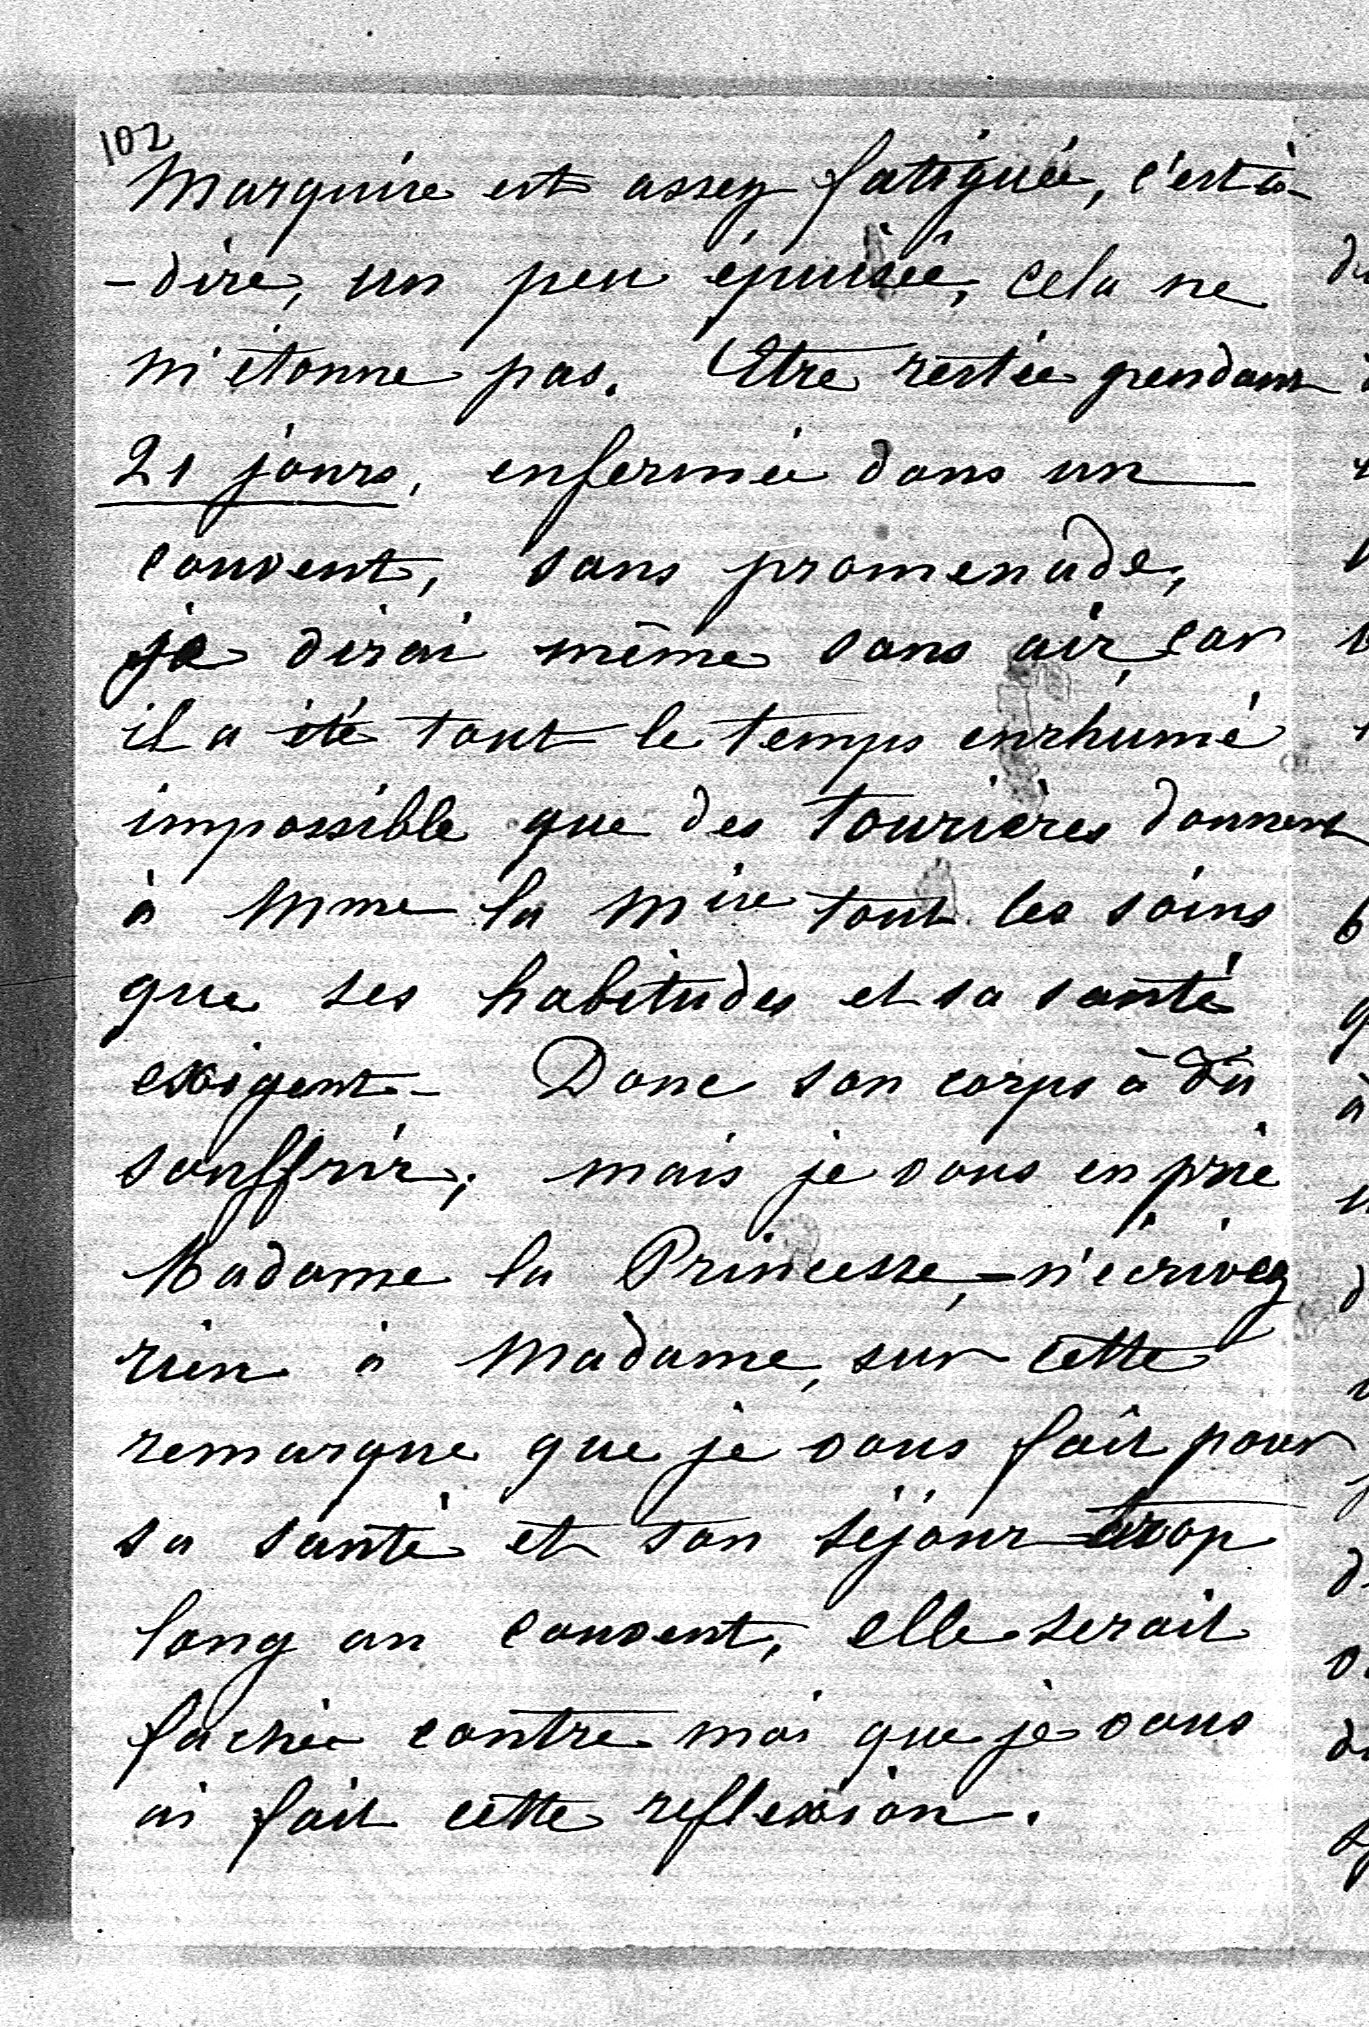 102
Marquise est assez fatiguée, c'est à
-dire, un peu épuisée, cela ne
m'étonne pas. Etre restée pendant
21 jours, enfermée dans un
couvent, sans promenade,
je dirai même sans air, car
il a été tout le temps enrhumé
impossible que des tourières donnent
à Mme la Mise tout les soins
que ses habitudes et sa santé
exigent - Donc son corps à dû
souffrir; mais je vous en prie
Madame la Princesse, - n'écrivez
rien à Madame, sur cette
remarque que je vous fait pour
sa santé et son séjour trop
long au couvent, elle serait
fachée contre moi que je vous
ai fait cette reflexion.